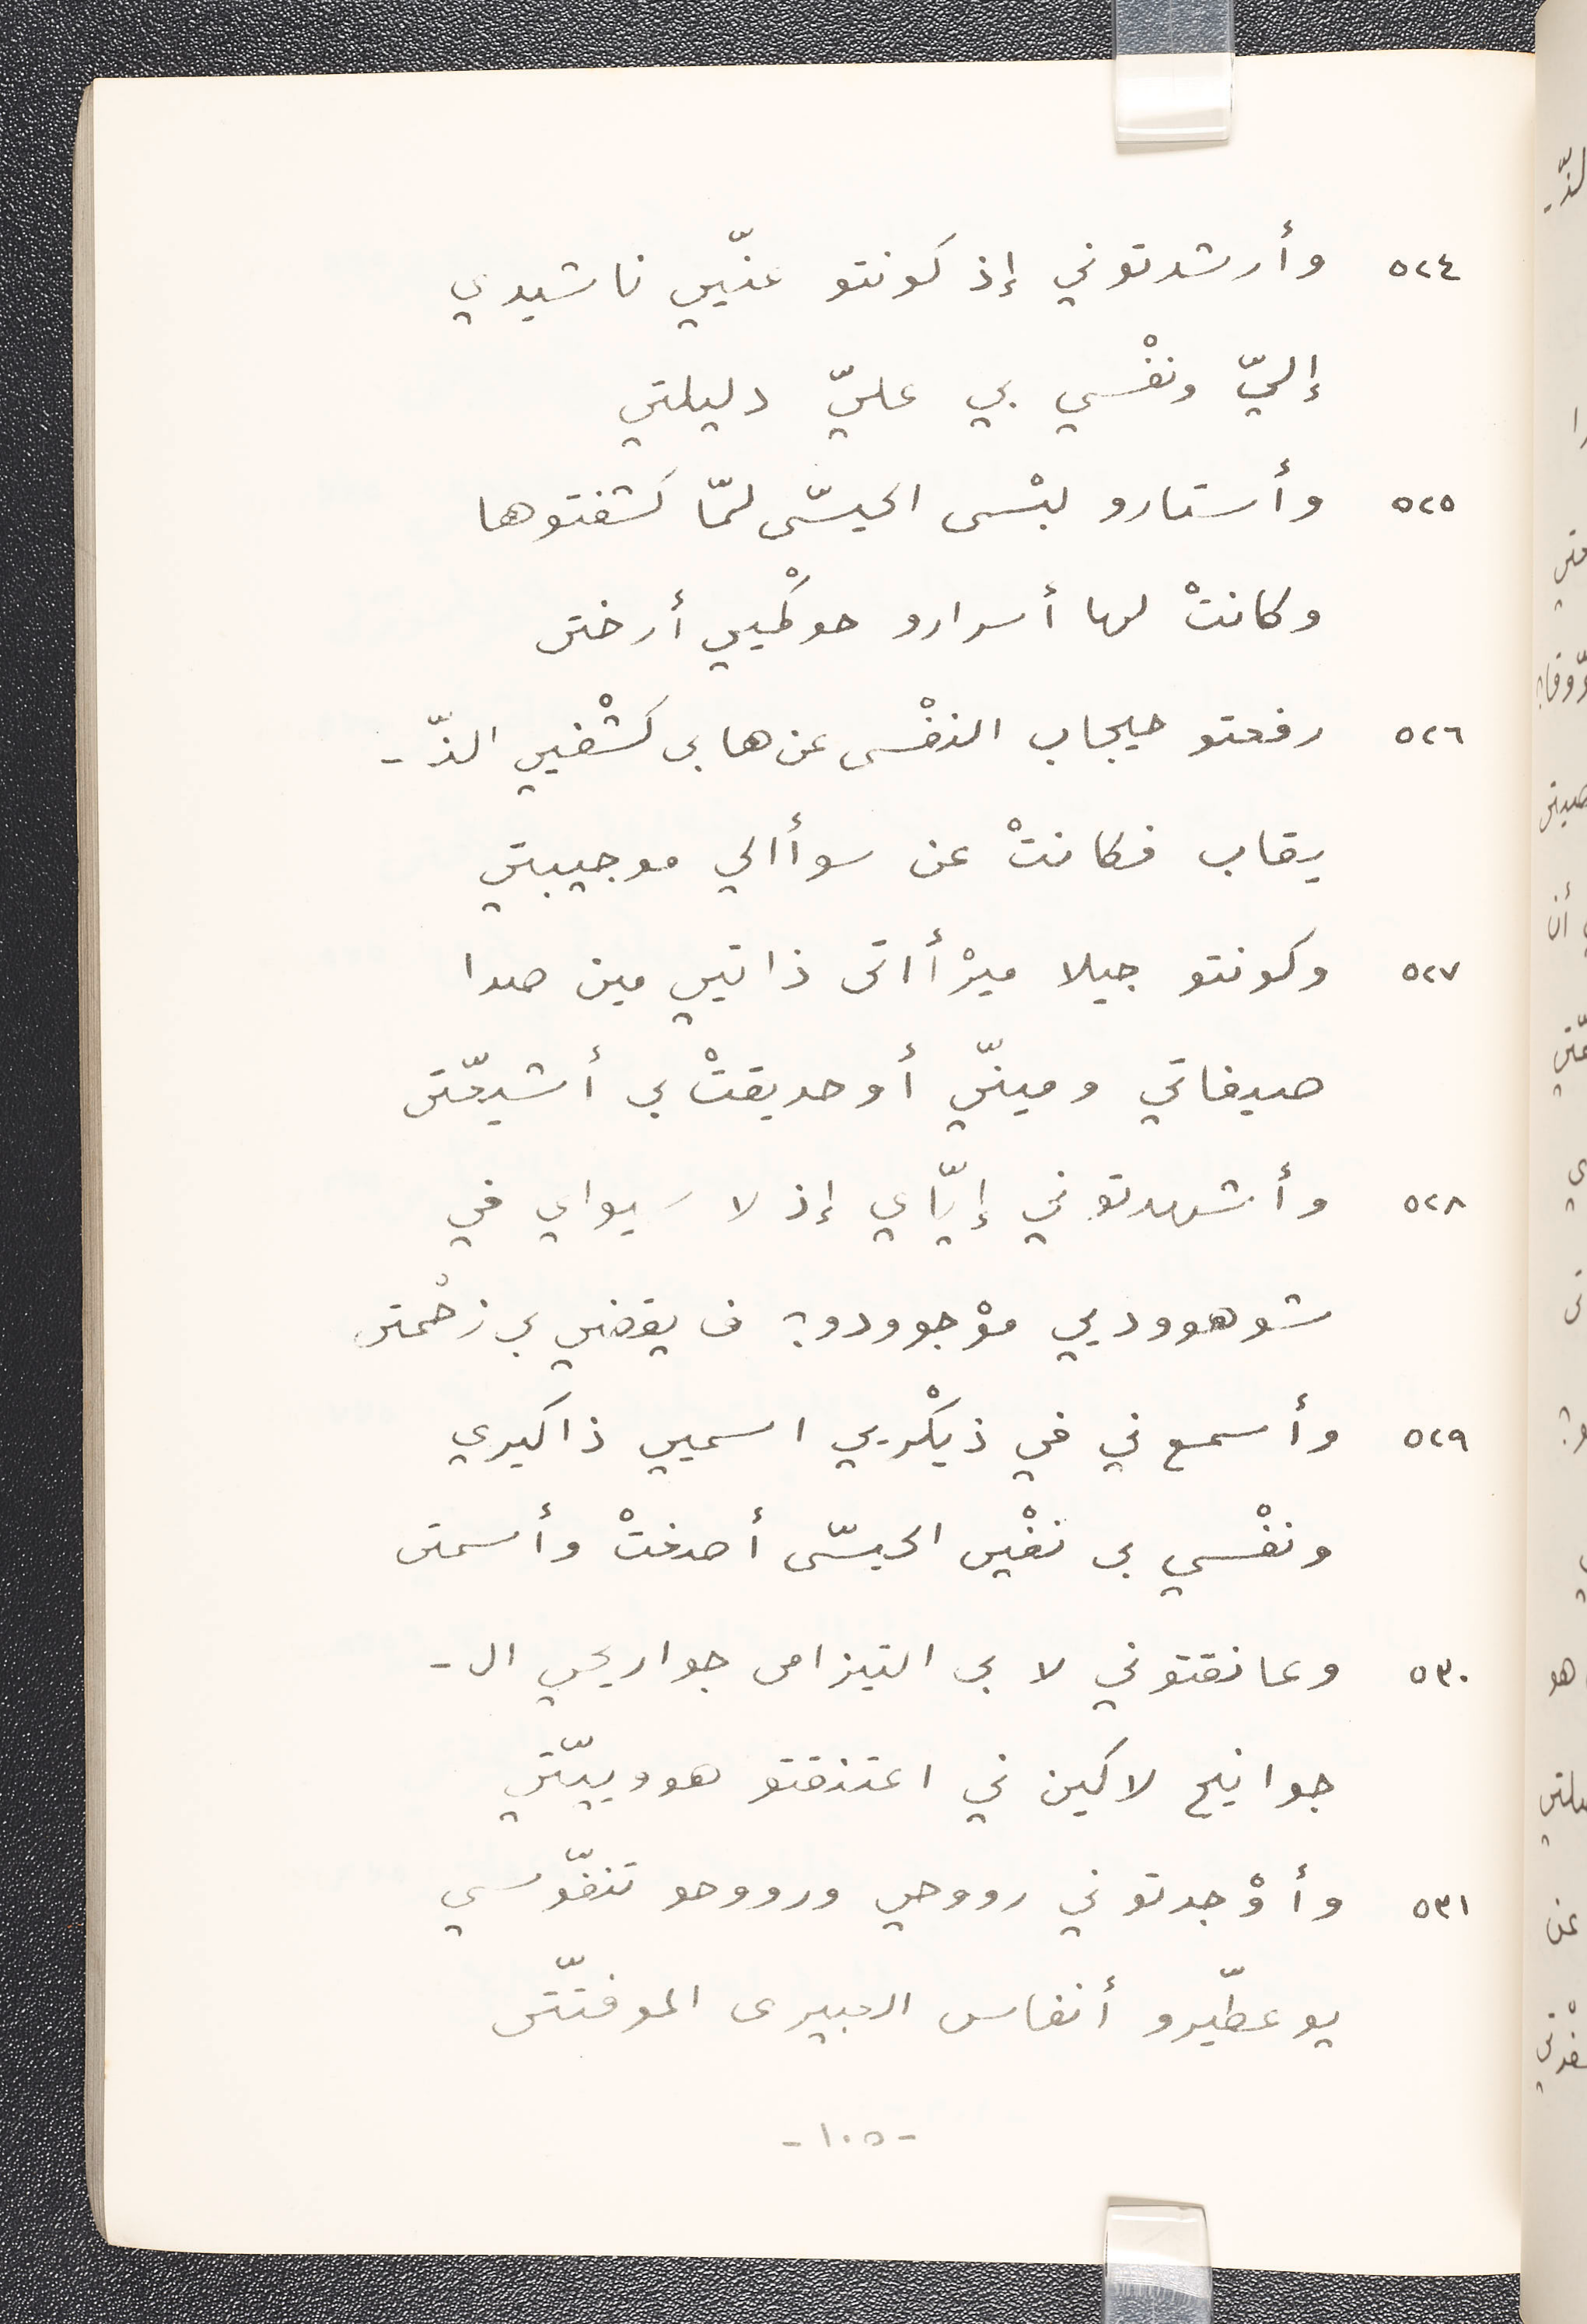 ٥٢٤ وأرشدتوني إذ كونتو عنّيي ناشيدي
إليّ ونفْسي بي عليّ دليلتي
٥٢٥ وأستارو لبْسى الحيسّى لمّا كشفتوها
وكانتْ لها أسرارو حوكْميي أرختى
٥٢٦ رفعتو حيجاب النفْسى عن ها بى كشْفيي النّ -
يقاب فكانتْ عن سوأالي موجيبتي
٥٢٧ وكونتو جيلا ميرْأاتى ذاتيي مين صدا
صيفاتي ومينّي أوحديقتْ بى أشيعّتى
٥٢٨ وأشهدتوني إيّاي إذ لا سيواي في
شوهووديي موْجوودوٍ ف يقضي بى زحْمتى
٥٢٩ وأسمع ني في ذيكْريي اسميي ذاكيري
ونفْسي بى نفْيى الحيسّى أصغتْ وأسمتى
٥٣٠ وعانقتوني لا بى التيزامى جواريحي ال -
جوانيح لاكين ني اعتنقتو هووييّتي
٥٣١ وأوْجدتوني رووحي ورووحو تنفّوسي
يوعطّيرو أنفاس العبيرى الموفتّتى
- ١٠٥ -